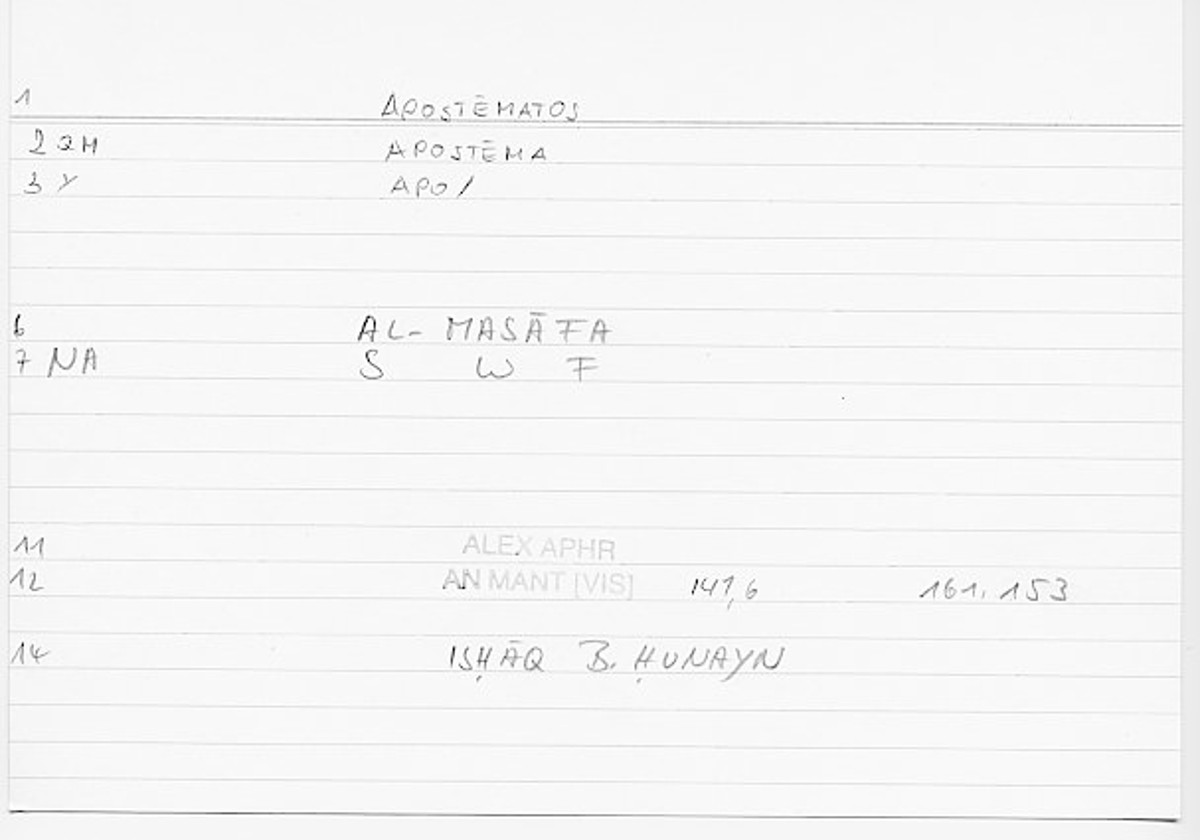 1 APOSTĒMATOS
2 QM APOSTĒMA
3 Y APO/
6 AL-MASĀFA
7 NA S W F
11 ALEX APHR
12 AN MANT [VIS] 147,6 161.153
14 ISḤĀQ B. ḤUNAYN